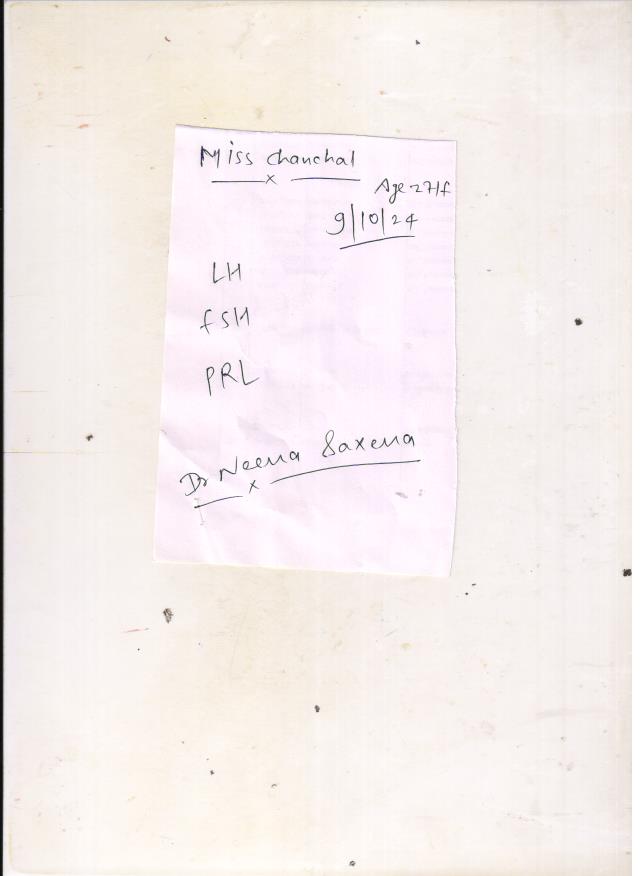 Miss Chanchal
Age 27/f
9/10/24
LH
fSH
PRL
Dr Neena Saxena